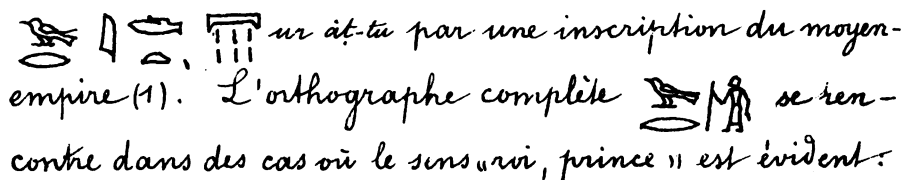 𓅨𓂋 𓇋𓂧𓏏 𓇲 ur ȧṭ-tu par une inscription du moyen-
empire (1). L'orthographe complète 𓅨𓂋𓀙 se ren-
contre dans des cas où le sens „roi, prince" est évident: